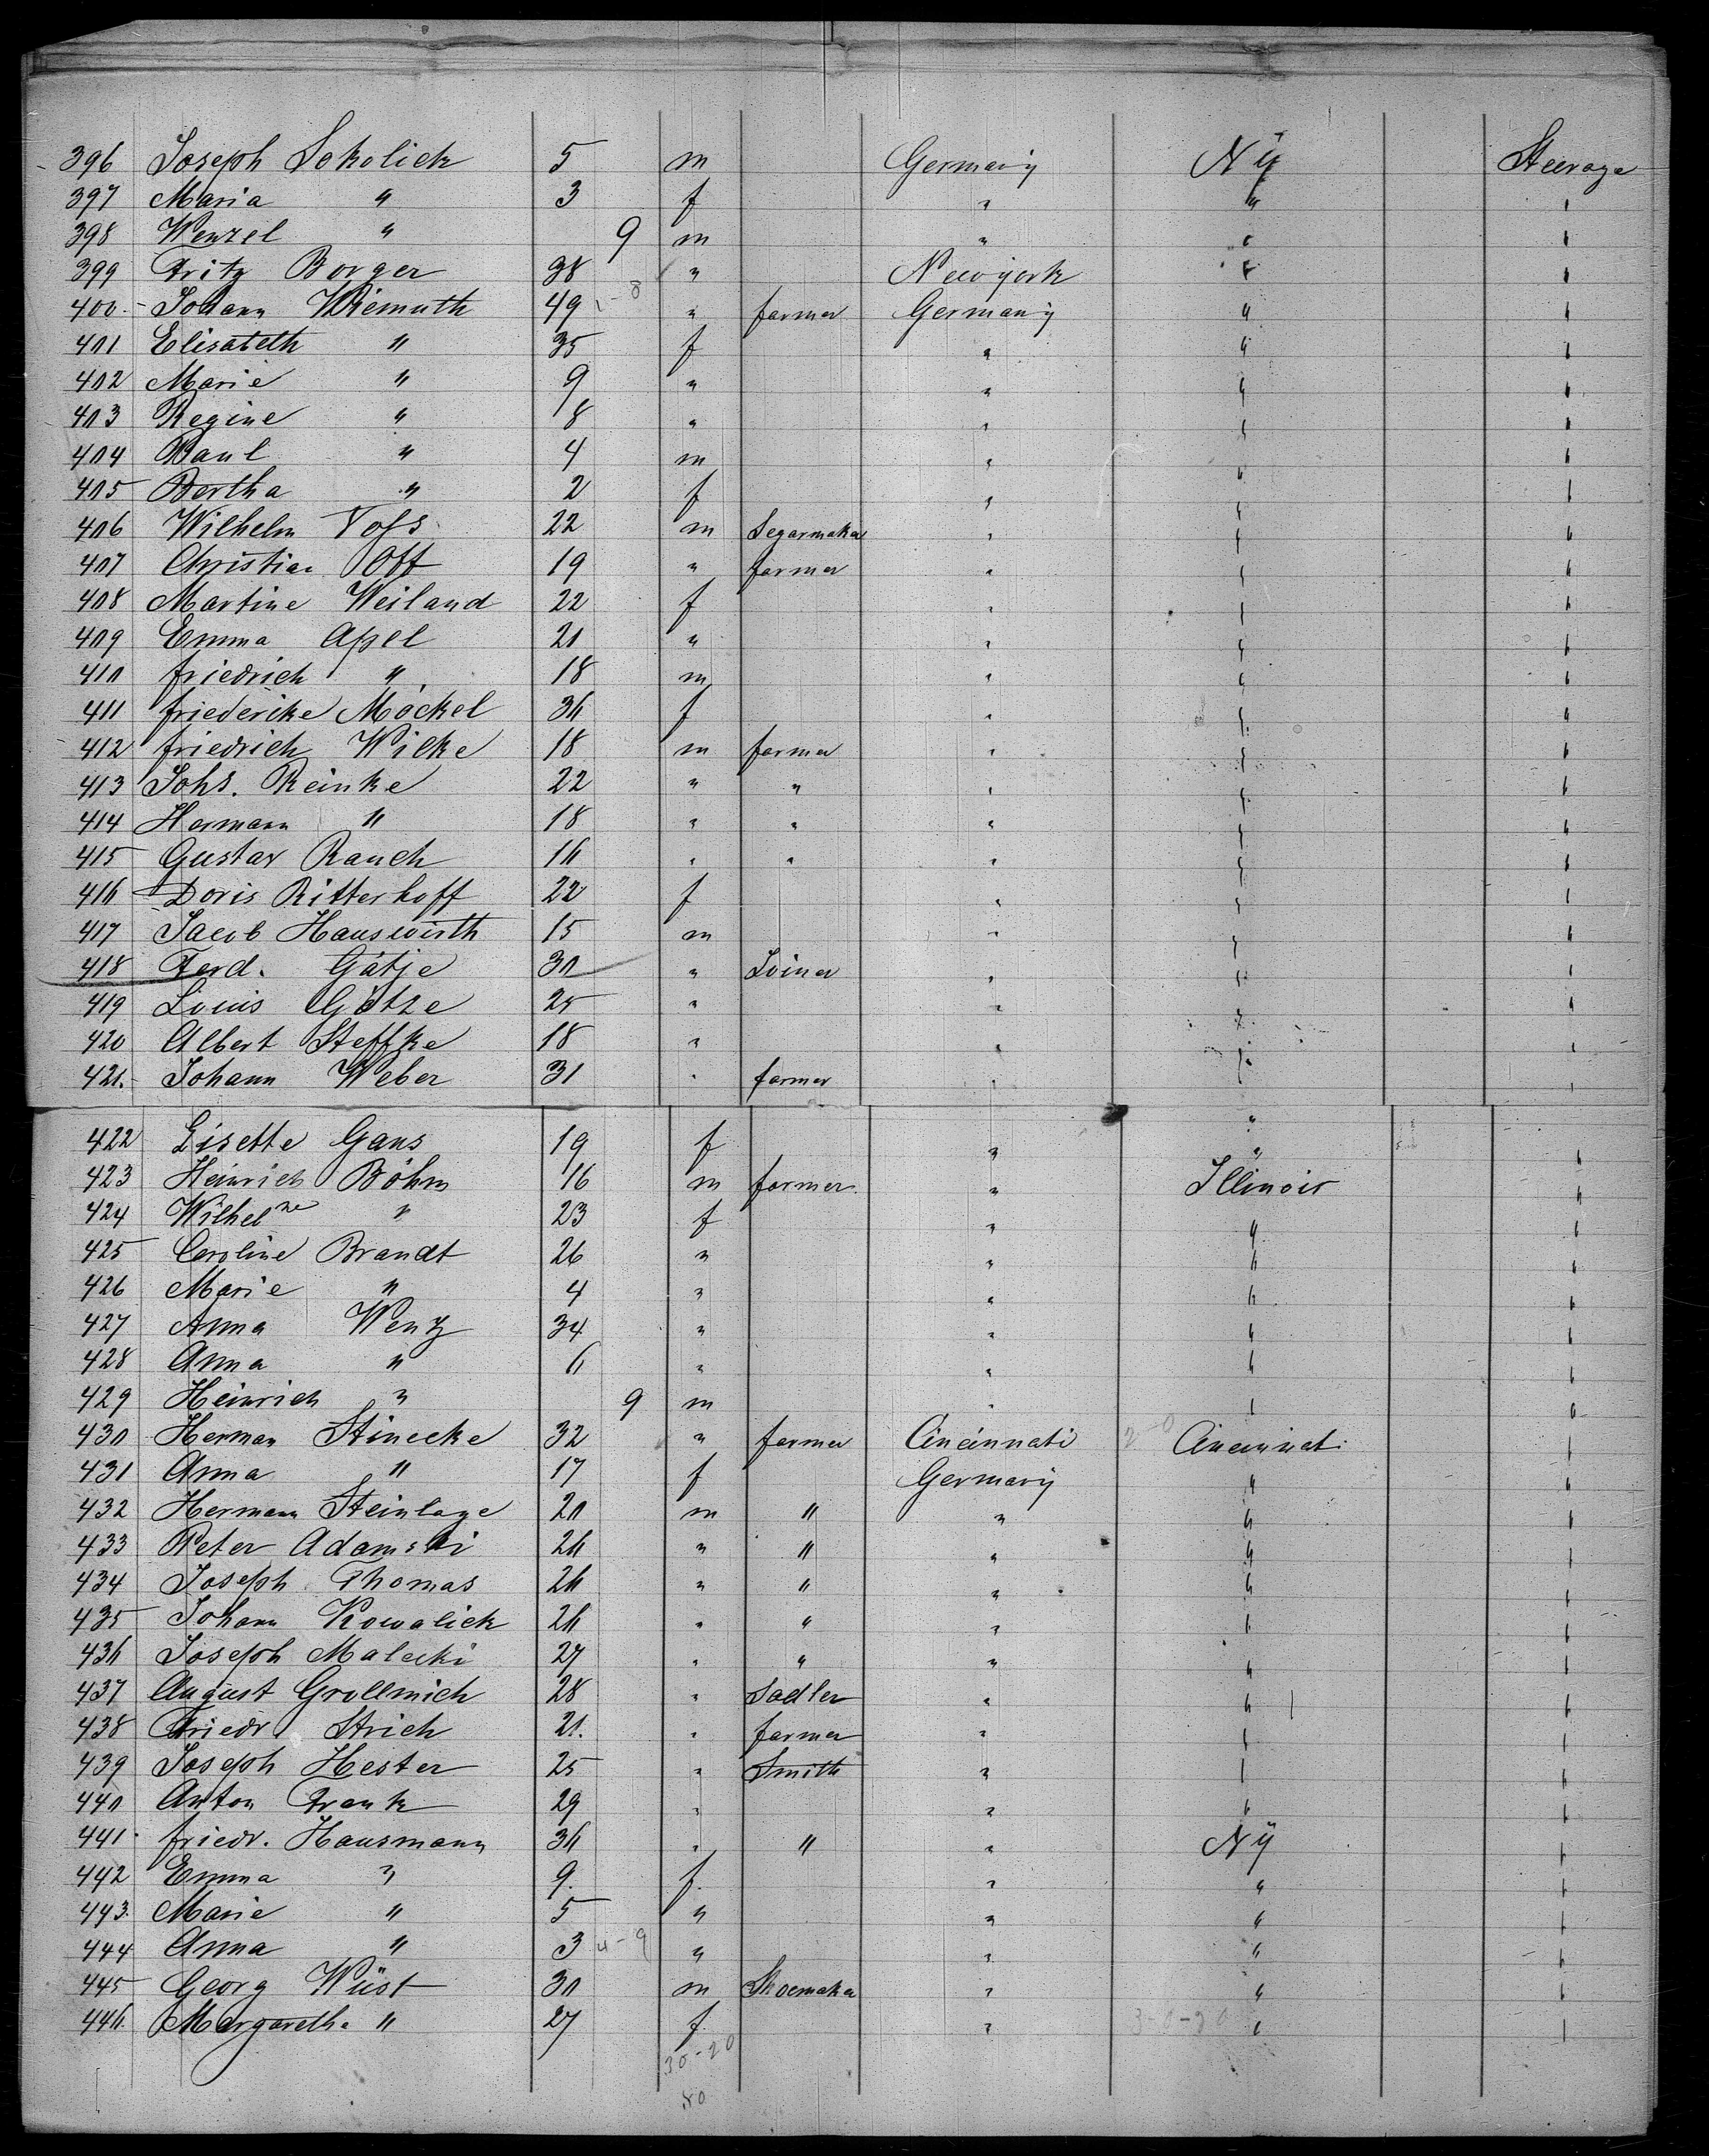 396 Joseph Sokolick 5 m Germany NY Steerage
397 Maria " 3 f " " "
398 Wenzel " 9 m " " "
399 Fritz Borger 38 " Newyork " "
400 Johann Wiemuth 49 " farmer Germany " "
401 Elisabeth " 35 f " " "
402 Marie " 9 " " " "
403 Regine " 8 " " " "
404 Paul " 4 m " " "
405 Bertha " 2 f " " "
406 Wilhelm Voss 22 m Segarmaker " " "
407 Christian Ott 19 " farmer " " "
408 Martine Weiland 22 f " " "
409 Emma Apel 20 " " " "
410 friedrich " 18 m " " "
411 friederike Möckel 36 f " " "
412 friedrich Wilke 18 m farmer " " "
413 Johs. Reinke 22 " " " " "
414 Hermann " 18 " " " " "
415 Gustav Rauch 16 " " " " "
416 Doris Ritterhoff 22 f " " "
417 Jacob Hauswirth 15 m " " "
418 Ferd. Gätje 30 " Joiner " " "
419 Louis Götze 25 " " " "
420 Albert Steffke 18 " " " "
421. Johann Weber 31 " farmer " " "
422 Lisette Gans 19 f " " "
423 Heinrich Böhm 16 m farmer " Illinois "
424 Wilhelne " 23 f " " "
425 Caroline Brandt 26 " " " "
426 Marie " 4 " " " "
427 Anna Wenz 34 " " " "
428 Anna " 6 " " " "
429 Heinrich " 9 m " " "
430 Herman Stinecke 32 " farmer Cincinnati Cincinnati "
431 Anna " 17 f Germany " "
432 Hermann Steinlage 20 m " " " "
433 Peter Adamski 26 " " " " "
434 Joseph Thomas 26 " " " " "
435 Johann Kowalick 26 " " " " "
436 Joseph Malecki 27 " " " " "
437 August Grollmich 28 " Sadler " " "
438 Friedr Strich 21. " farmer " " "
439 Joseph Hester 25 " Smith " " "
440 Anton Frank 29 " " " "
441. friedr. Hausmann 36 " " " NY "
442 Emma " 9. f. " " "
443. Marie " 5 " " " "
444 Anna " 3 4-9 " " " "
445 Georg Wüst 30 m Shoemaker " " "
446. Margarethe " 27 f. " " "
30-20